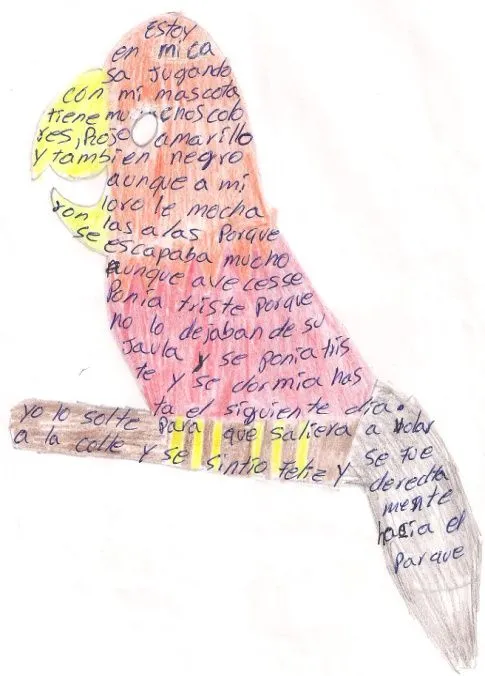 Estoy
en mi ca
sa jugando
con mi mascota
tiene muchos colo
res, Rojo amarillo
y tambien negro
aunque a mi
loro le mocha
ron las alas Porque
se escapaba mucho
aunque aveces se
Ponia triste Porque
no lo dejaban de su
Jaula y se ponia tris
te y se dormia has
ta el siguiente dia.
yo lo solte Para que saliera a volar
a la calle y se sintio feliz y se fue
derecha
mente
hacia el
Parque